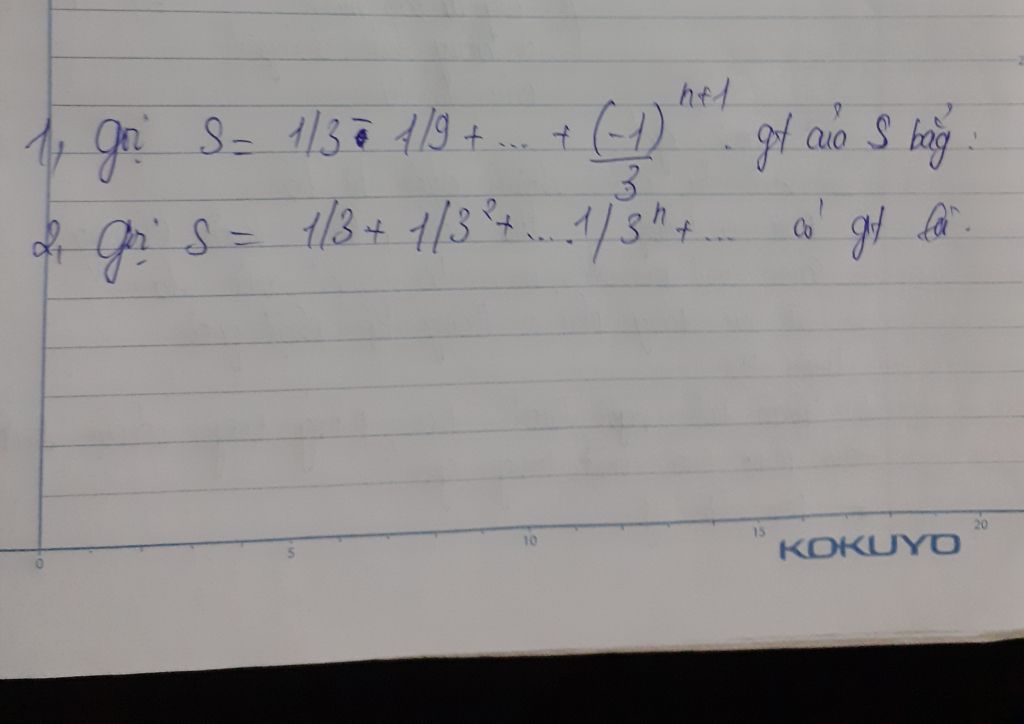 1, Gọi S = 1/3 - 1/9 + ... + (-1)^{n+1}/3 . gt của S bằg :
2, Gọi S = 1/3 + 1/3² + ....1/3ⁿ + ... có gt là.
0 5 10 15 20
KOKUYO